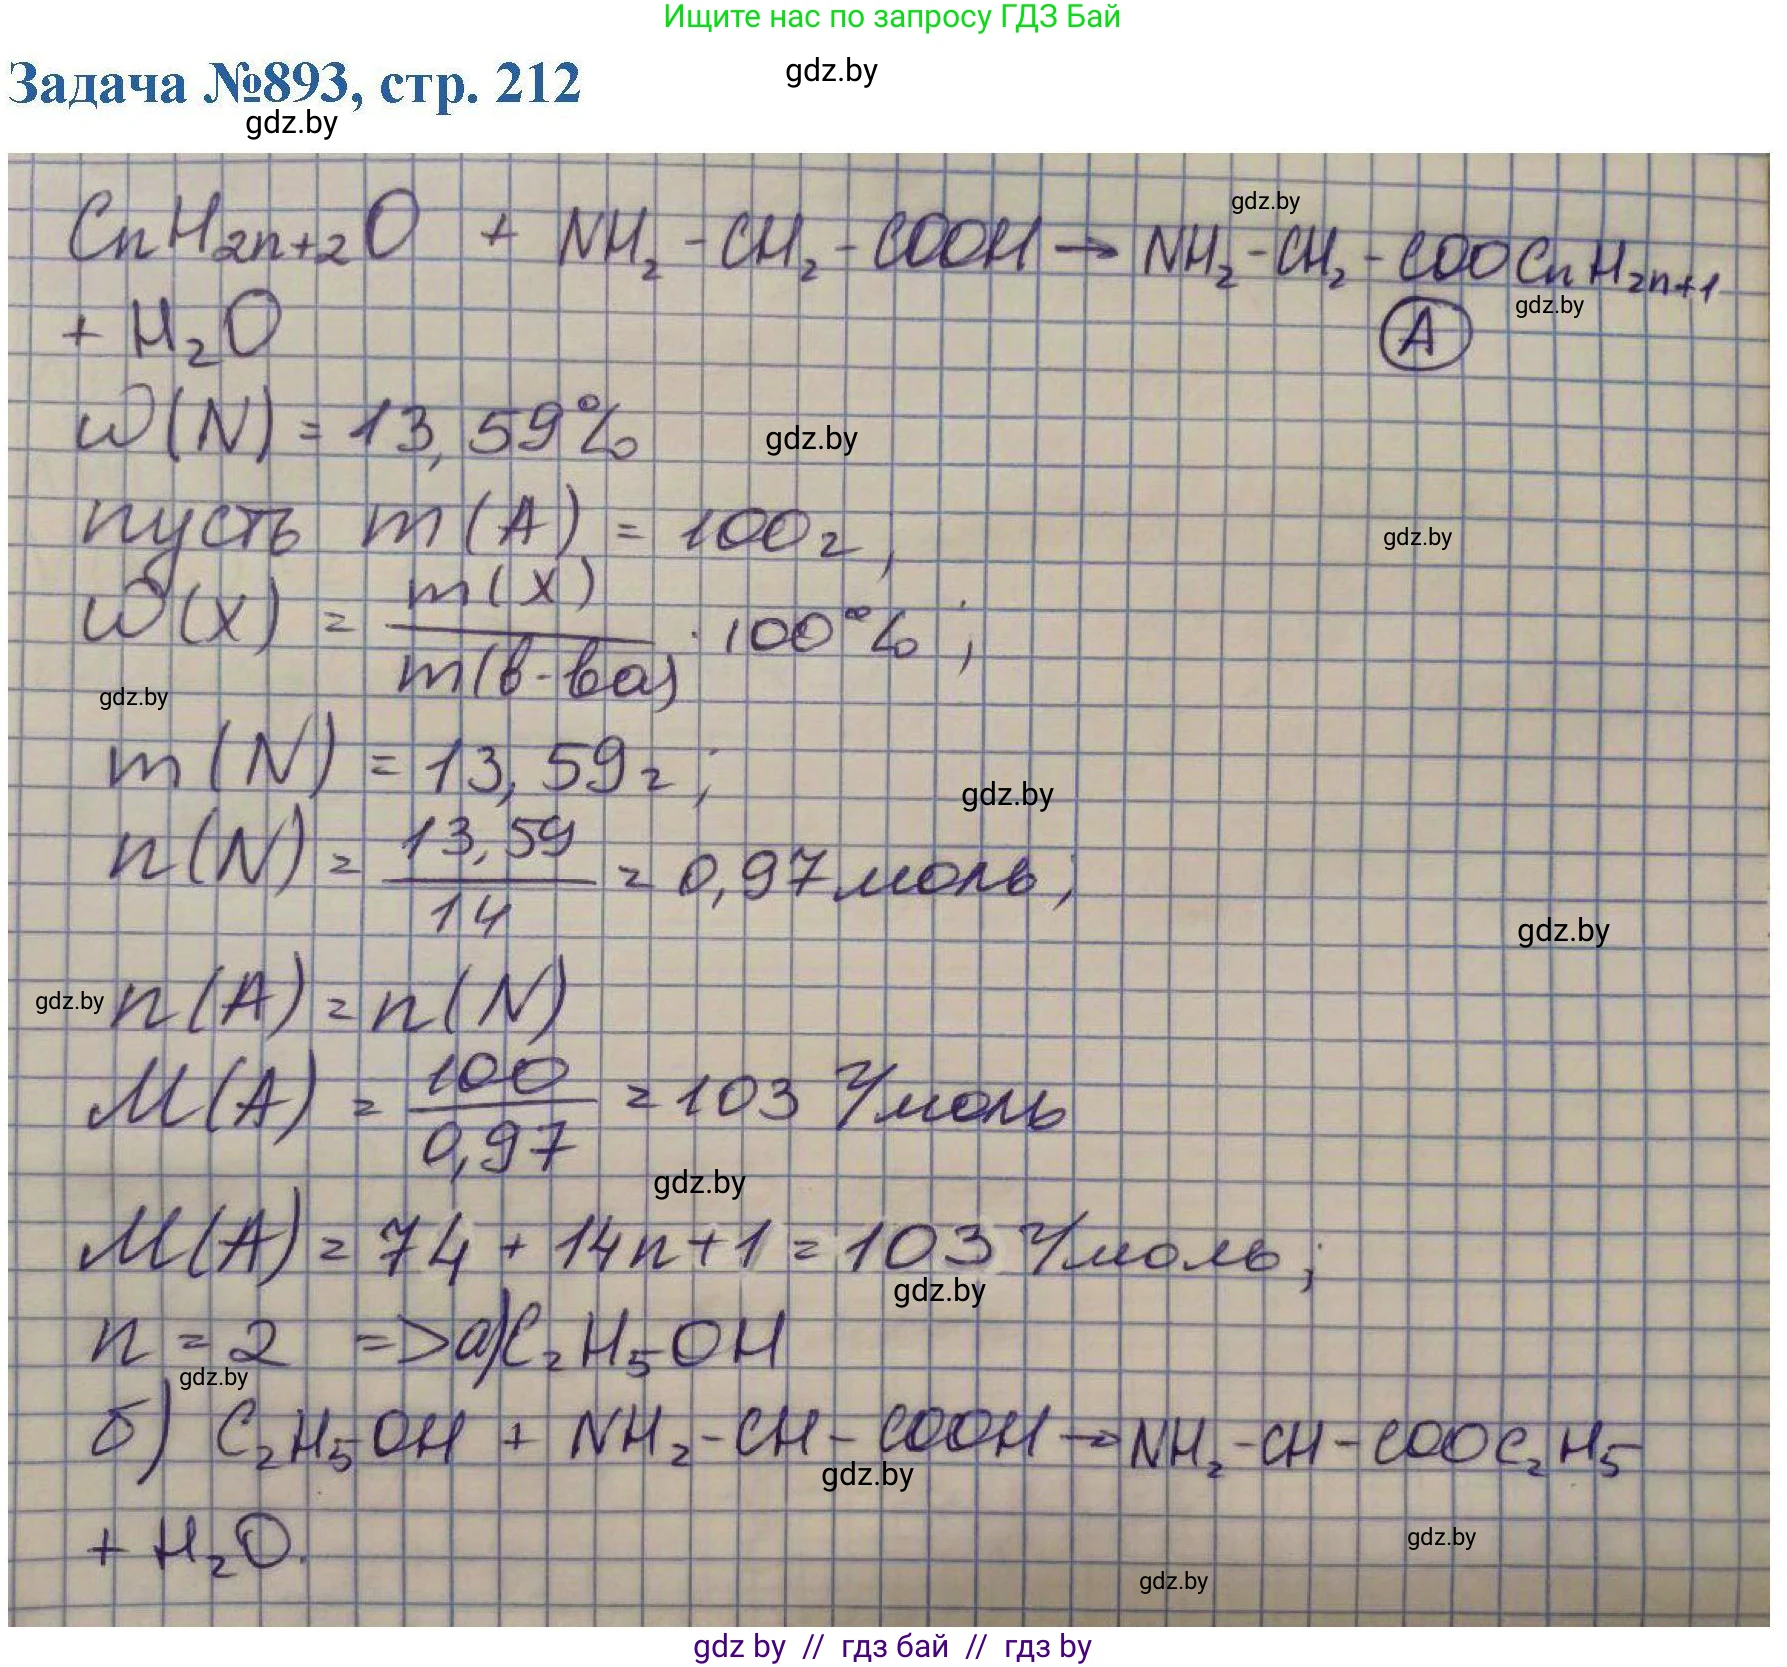 Ищите нас по запросу ГДЗ Бай
Задача №893, стр. 212
gdz.by
gdz.by
gdz.by
CnH2n+2O + NH2-CH2-COOH → NH2-CH2-COOCnH2n+1
gdz.by
+ H2O
A
ω(N) = 13,59%
gdz.by
пусть m(A) = 100г;
gdz.by
ω(x) = m(x) / m(в-ва) · 100%;
gdz.by
m(N) = 13,59г;
gdz.by
n(N) = 13,59 / 14 = 0,97 моль;
gdz.by
gdz.by
n(A) = n(N)
M(A) = 100 / 0,97 = 103 г/моль
gdz.by
M(A) = 74 + 14n + 1 = 103 г/моль;
gdz.by
n = 2 => а) C2H5OH
gdz.by
б) C2H5OH + NH2-CH-COOH → NH2-CH-COOC2H5
gdz.by
+ H2O.
gdz.by
gdz.by
gdz by // гдз бай // гдз by